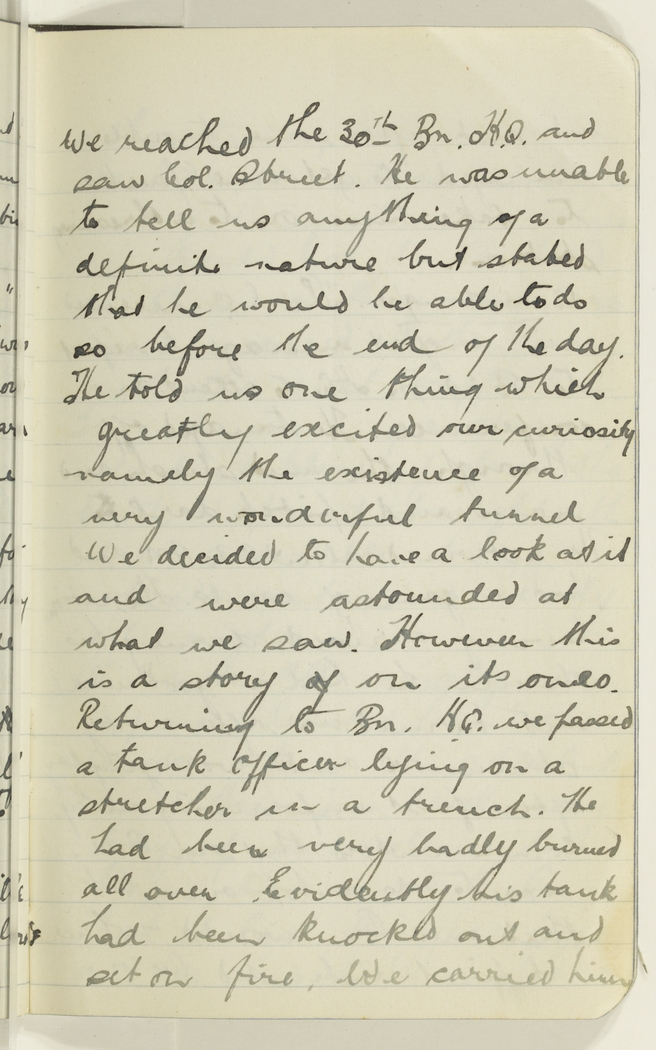 We reached the 30th Bn. H.Q. and
saw Col. Street. He was unable
to tell us anything of a
definite nature but stated
that he would be able to do
so before the end of the day.
He told us one thing which
greatly excited our curiosity
namely the existence of a
very wonderful tunnel
We decided to have a look at it
and were astounded at
what we saw. However this
is a story of on its own.
Returning to Bn. HQ. we passed
a tank officer lying on a
stretcher in a trench. He
had been very badly burned
all over. Evidently his tank
had been knocked out and
set on fire. We carried him